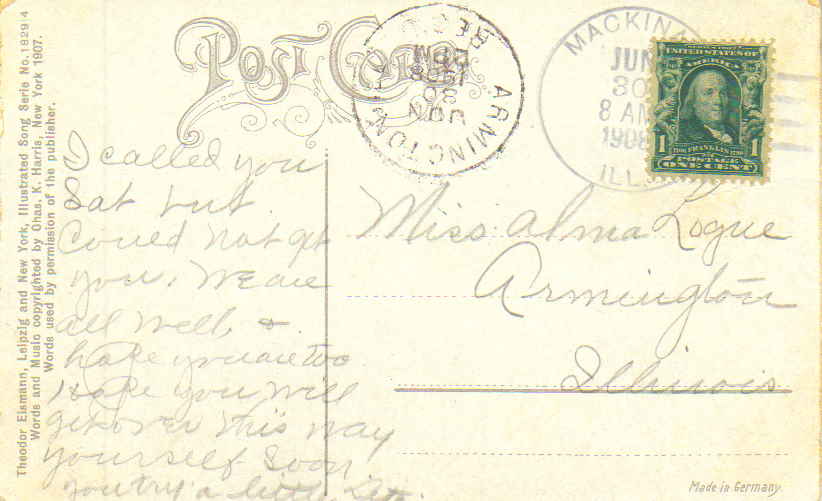 Theodor Eismann, Leipzig and New York, Illustrated Song Serie No. 1829/4
Words and Music copyrighted by Chas. K. Harris, New York 1907.
Words used by permission of the publisher.
POST CARD
ARMINGTON
REC'D
JUN
30
1908
MACKINAW
JUN
30
8 AM
1908
ILL.
SERIES 1902
UNITED STATES OF
AMERICA
1 FRANKLIN 1
POSTAGE
ONE CENT
I called you
Sat but
Could not get
you. We are
all well &
hope you are too
Hope you will
get over this way
yourself soon
you try a little
Miss Alma Logue
Armington
Illinois
Made in Germany.